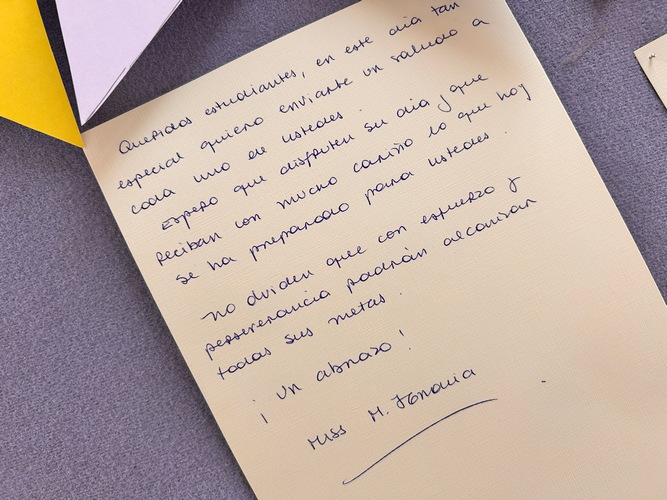 Queridos estudiantes, en este día tan
especial quiero enviarte un saludo a
cada uno de ustedes.
Espero que disfruten su día y que
reciban con mucho cariño lo que hoy
se ha preparado para ustedes.
no dviden que con esfuerzo y
perseverancia podrán alcanzar
todas sus metas.
¡ Un abrazo!
Miss M.